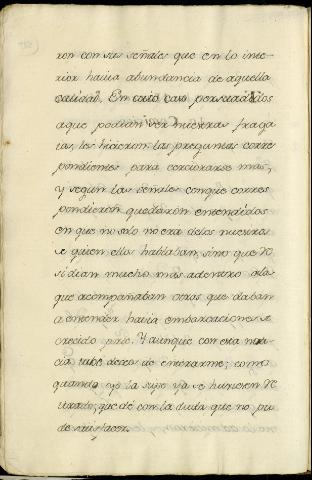 ron con sus señales que en lo inte-
rior havia abundancia de aquella
calidad. En cuio caso persuadidos
aque podian ser nuestras fraga-
tas, les hicieron las preguntas corres
pondientes para cerciorarse mas,
y segun las señales conque corres
pondieron quedaron entendidos
en que no solo no era delos nuestros
de quien ellos hablaban, sino que re
sidian mucho mas adentro alas
que acompañaban otras que daban
a entender havia embarcaciones de
crecido porte. Y aunque con esta noti
cia tube deseo de enterarme; como
quando yo la supe ya se huviesen re
tirado; quedé con la duda que no pu
de satisfacer.